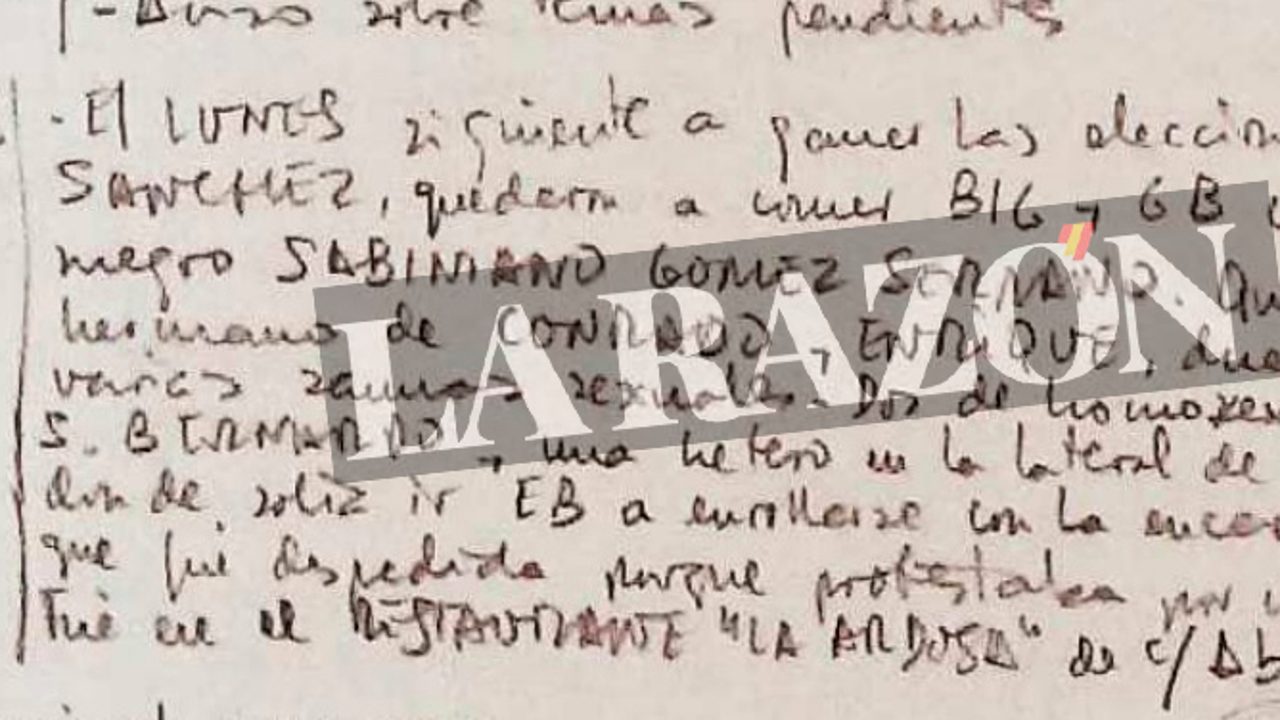 - Aviso sobre temas pendientes
- El LUNES siguiente a ganar las eleccion
SANCHEZ, quedaron a comer BIG y GB
negro SABINIANO GOMEZ SERRANO. Qu
hermano de CONRADO y ENRIQUE, due
varias saunas sexuales. Dos de homosex
S. BERNARDO y una hetero en la lateral de
donde solía ir EB a enrollarse con la enca
que fue despedida porque protestaba por
Fué en el RESTAURANTE "LA ARDOSA" de c/
LA RAZÓN